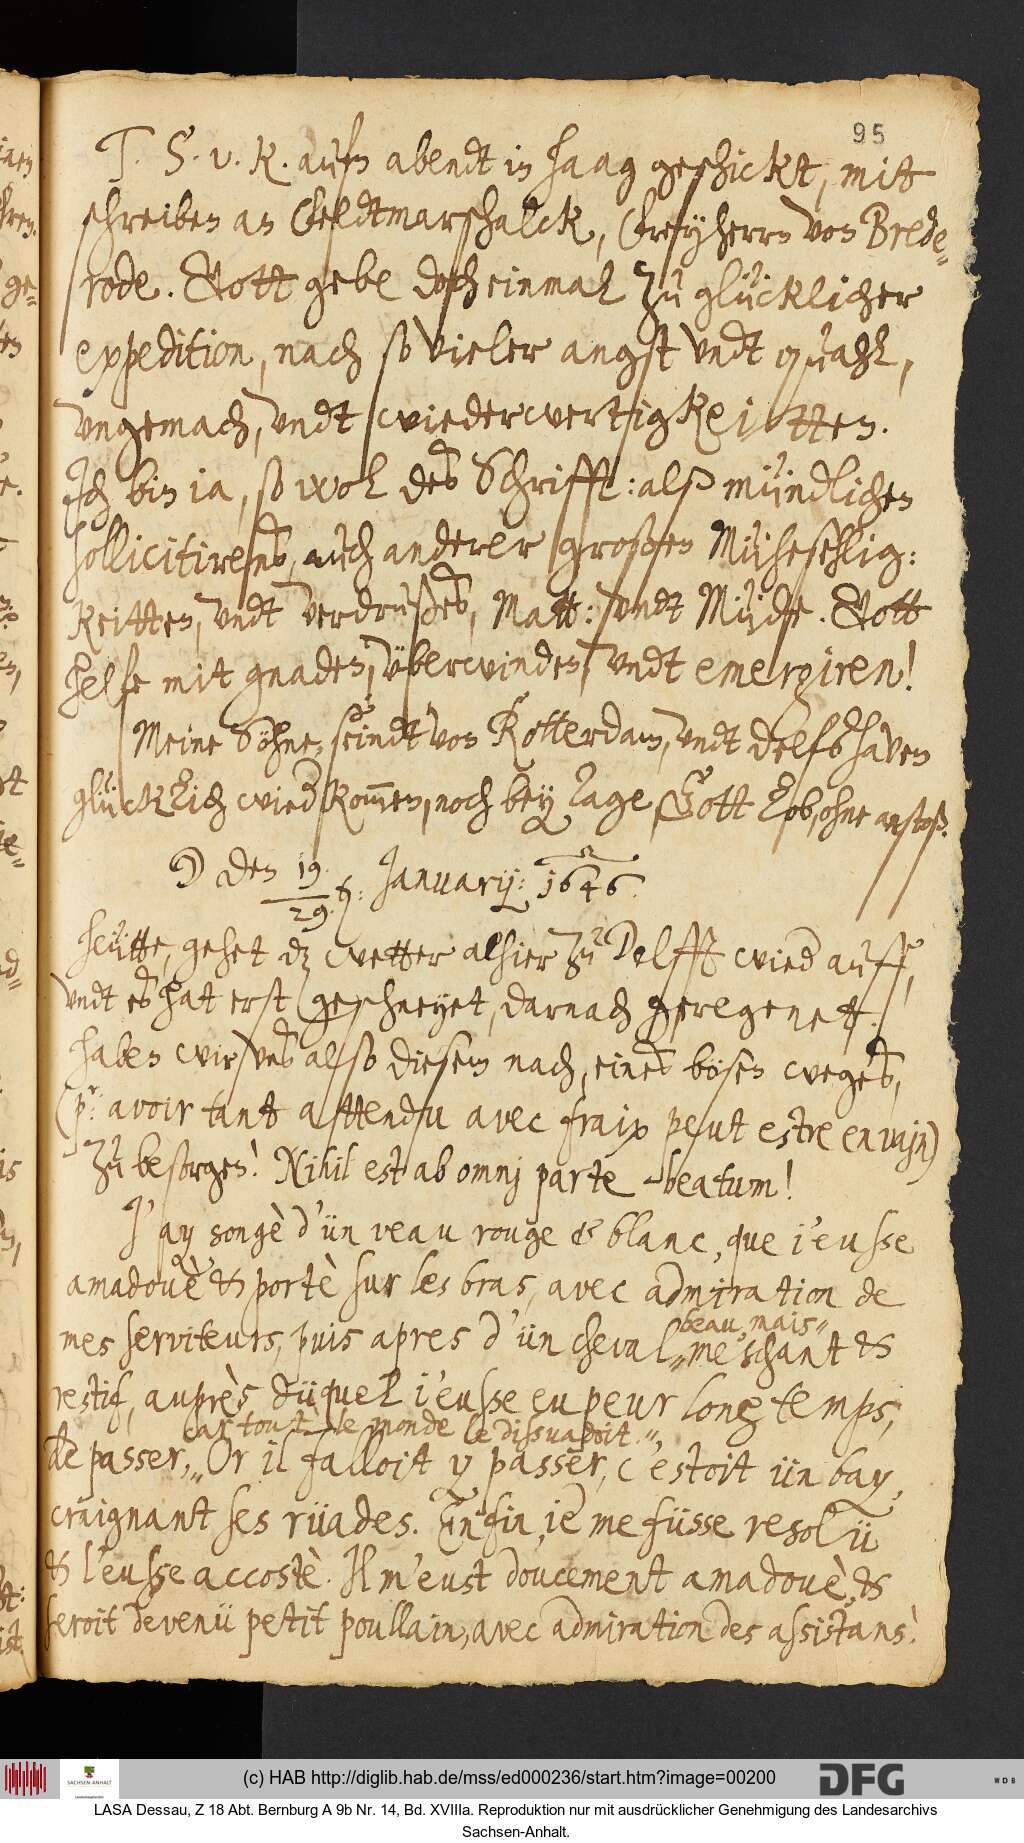 95
T. S. v. K. aufn abendt in Haag geschickt, mitt
schreiben an Feldtmarschalck, Freyherrn von Brede-
rode. Gott gebe doch einmal zu glücklicher
expedition, nach so vieler angst undt quahl,
vngemach, vndt wiederwertigkeitten.
Ich bin ia, so wol des Schrifft: alß mündlichen
sollicitirens, auch anderer großen Müheseelig:
keitten, vndt verdrußes, Matt: vndt Müde. Gott
helfe mit gnaden, überwinden, vndt emergiren!
Meine Söhne, seindt von Rotterdam, vndt Delfshaven
glücklich wied kommen, noch bey Tage, Gott lob, ohne anstoß.
☽ den 19. / 29. January: 1646.
Heütte, gehet dz wetter alhier zu Delfft wied auff,
vndt es hat erst geschneyet, darnach geregenet.
Haben wir vns also diesem nach, eines bösen weges,
(pr: avoir tant attendu avec fraix peut estre en vain)
zu besorgen! Nihil est ab omnj parte beatum!
J'ay songè d'ün veau rouge & blanc, que i'eusse
amadouè & portè sur les bras, avec admiration de
mes serviteurs, puis apres d'ün cheval beau, mais meschant &
restif, auprès düquel i'eusse eu peur long temps,
de passer, car tout le monde le dissuadoit. Or il falloit y passer, c'estoit ün bay,
craignant ses rüades. Enfin, ie me füsse resolü
& l'eusse accostè. Il m'eust doucement amadouè, &
seroit devenü petit poullain, avec admiration des assistans.
(c) HAB http://diglib.hab.de/mss/ed000236/start.htm?image=00200
SACHSEN-ANHALT
DFG
WDB
LASA Dessau, Z 18 Abt. Bernburg A 9b Nr. 14, Bd. XVIIIa. Reproduktion nur mit ausdrücklicher Genehmigung des Landesarchivs
Sachsen-Anhalt.